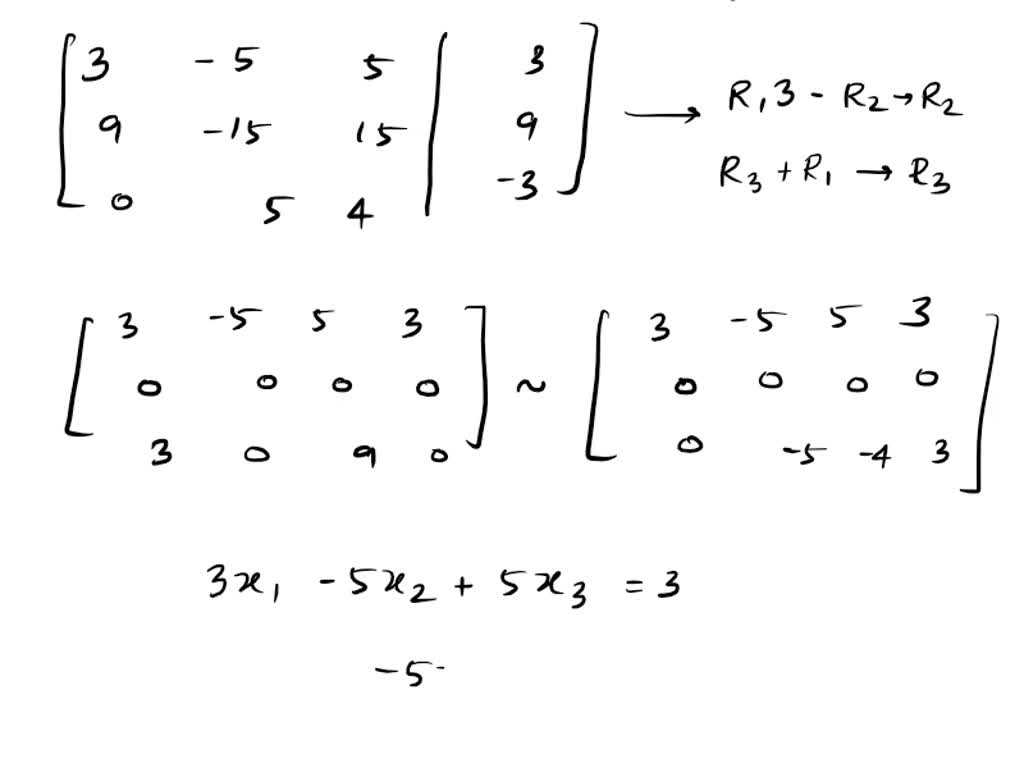 3 -5 5 3
9 -15 15 9
0 5 4 -3
R₁3 - R₂ → R₂
R₃ + R₁ → R₃
3 -5 5 3
0 0 0 0
3 0 9 0
~
3 -5 5 3
0 0 0 0
0 -5 -4 3
3x₁ - 5x₂ + 5x₃ = 3
-5